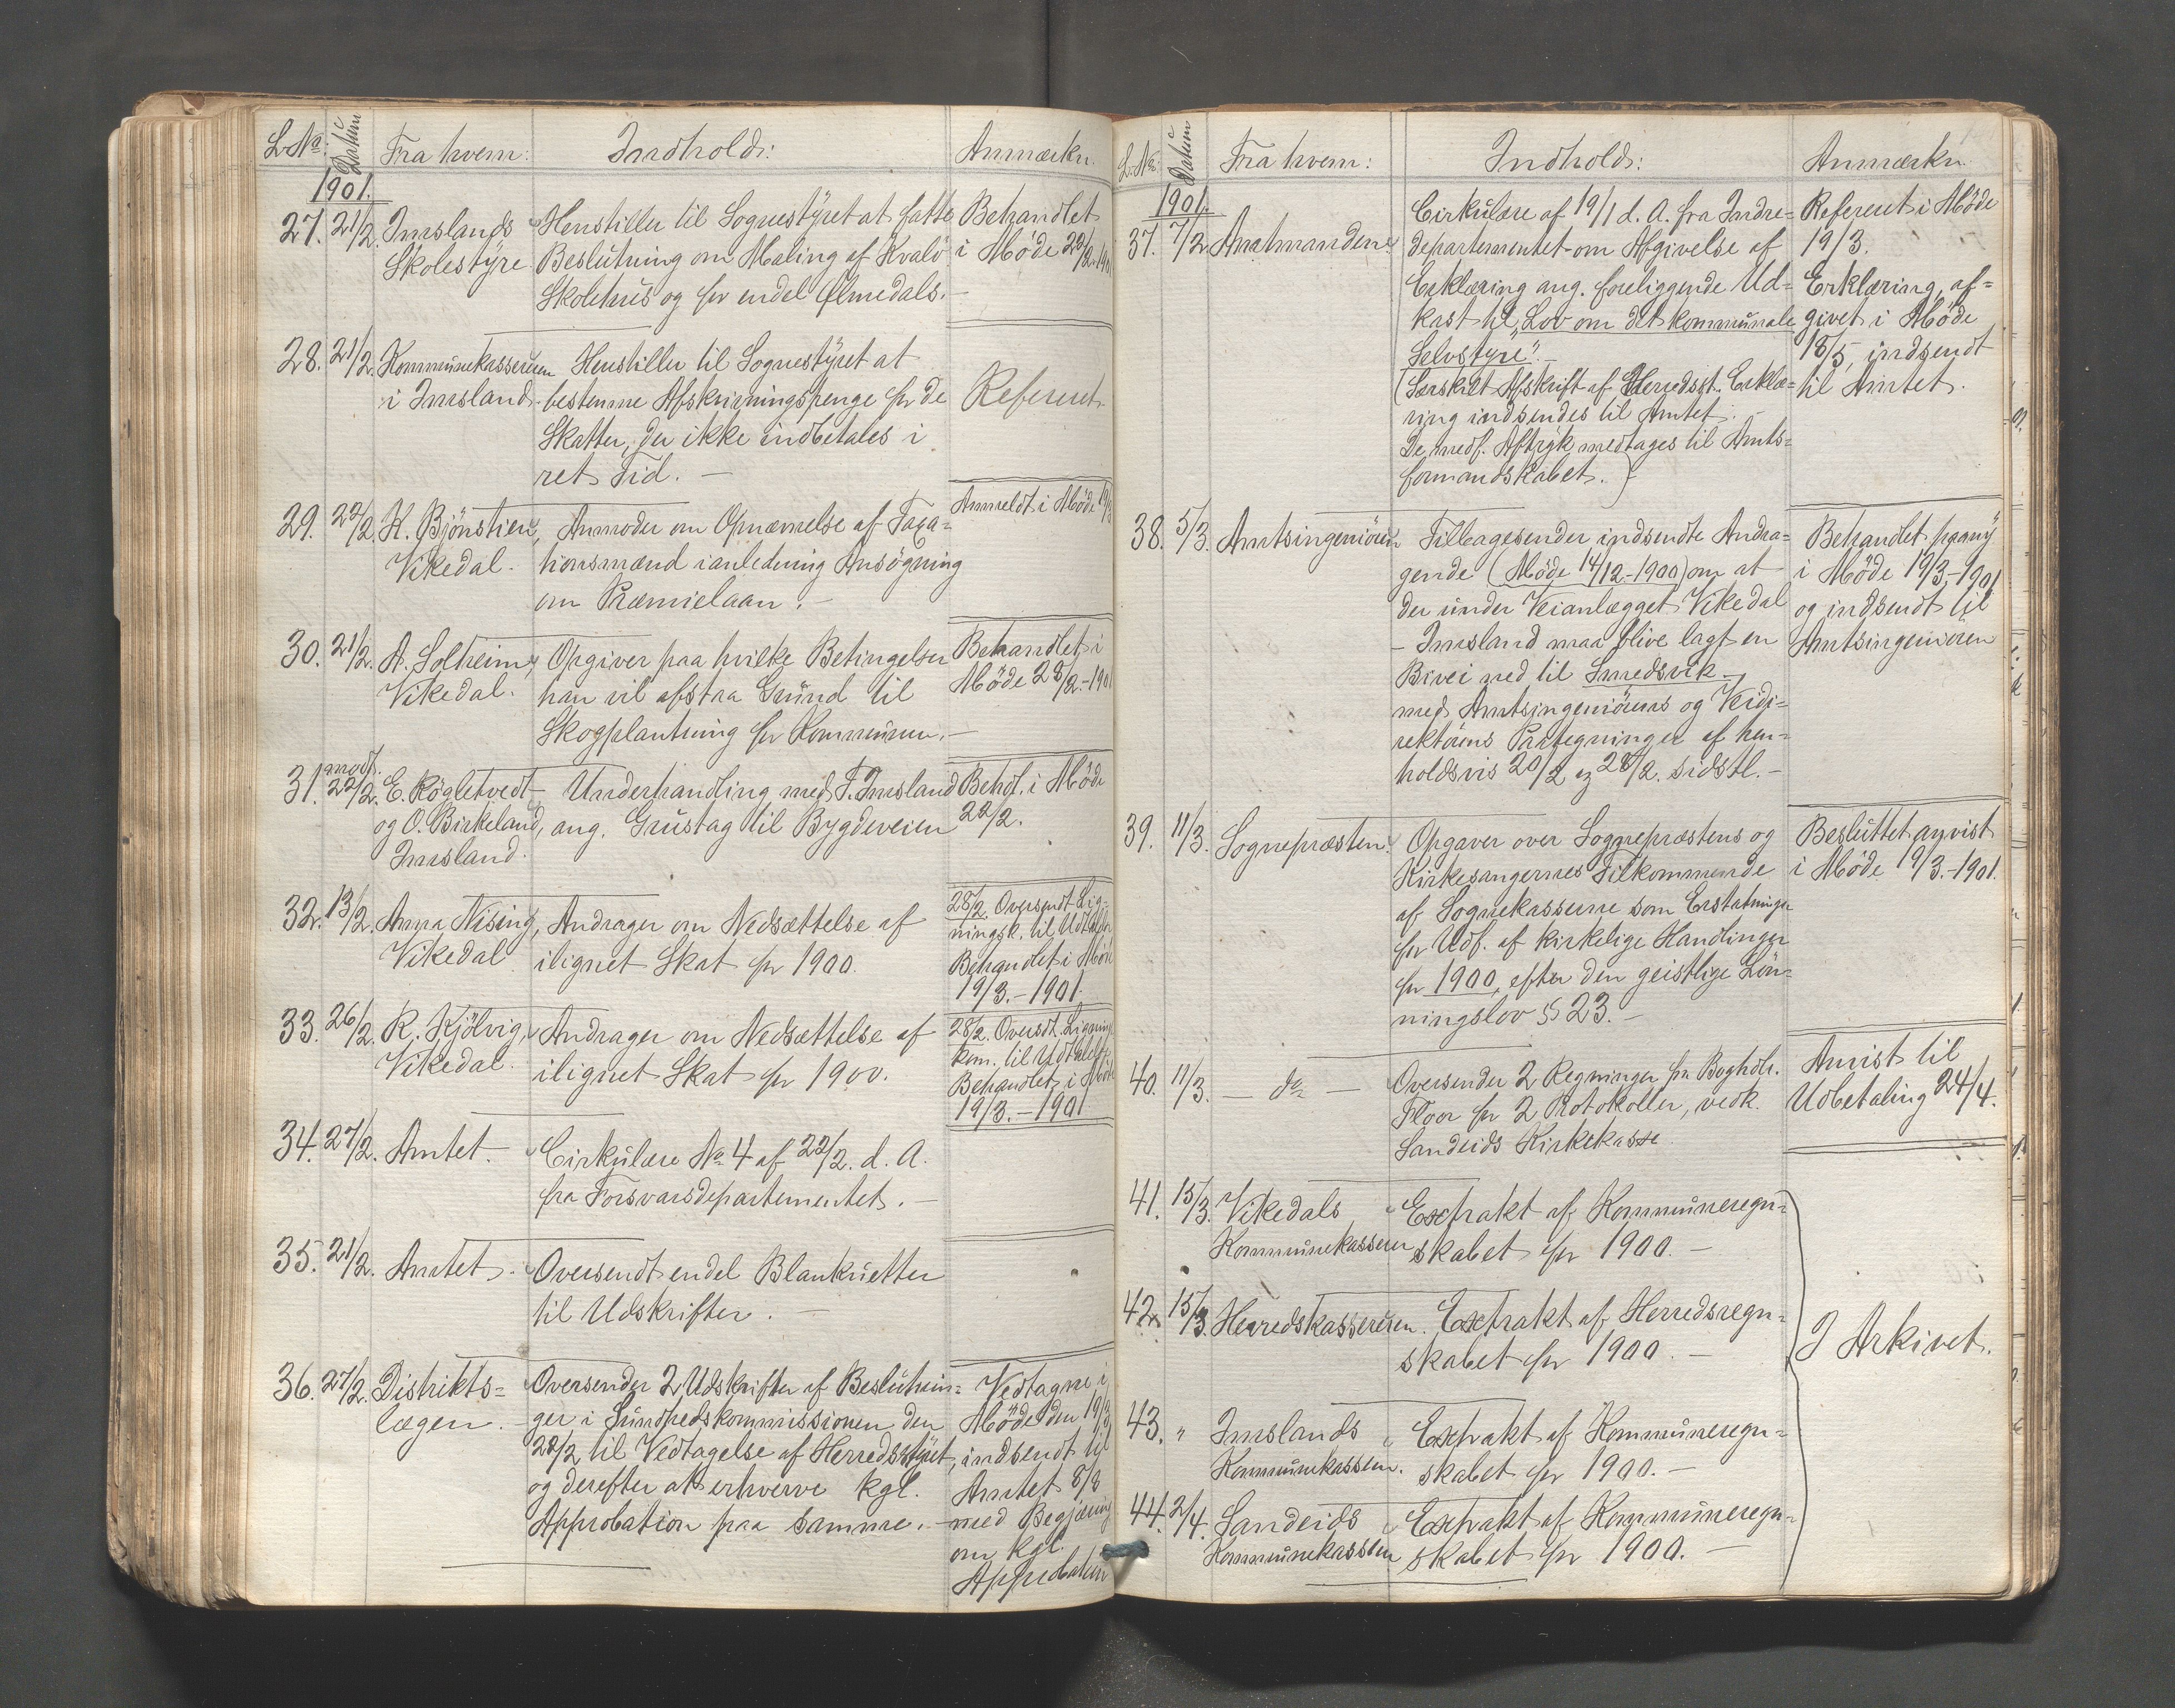 L. No: Datum Fra hvem: Indhold: Anmærkn.
1901.
27. 21/2. Imslands Henstiller til Sognestyret at fatte Behandlet
Skolestyre Beslutning om Maling af Kvalö i Möde 22/2. 1901
Skolehus og for endel Ølmedals. –
28. 21/2. Kommunekassereren Henstiller til Sognestyret at
i Imsland. bestemme Afskrivningspenge for de Refereret
Skatter, der ikke indbetales i
ret Tid. –
29. 22/2. K. Bjönstien, Anmoder om Opnævnelse af Taxa= Anmeldt i Möde 19/3
Vikedal. tionsmænd i anledning Ansögning
om Præmielaan. –
30. 21/2. A. Solheim, Opgiver paa hvilke Betingelser Behandlet i
Vikedal. han vil afstaa Grund til Möde 28/2. – 1901
Skogplantning for Kommunen. –
modt.
31. 22/2. E. Rögletvedt Underhandling med T. Imsland Behdl. i Möde
og O. Birkeland, ang. Grustag til Bygdeveien 22/2.
Imsland.
32. 13/2. Anna Nising, Andrager om Nedsættelse af 28/2. Oversendt Lig-
Vikedal ilignet Skat for 1900. ningsk. til Udtalelse
Behandlet i Möde
19/3. – 1901.
33. 26/2. R. Kjölvig, Andrager om Nedsættelse af 28/2. Oversdt. Lignings
Vikedal. ilignet Skat for 1900. kom. til Udtalelse
Behandlet i Möde
19/3. – 1901
34. 27/2. Amtet. Cirkulære No 4 af 22/2. d. A.
fra Forsvarsdepartementet. –
35. 21/2. Amtet. Oversendt endel Blanketter
til Udskrifter. –
36. 27/2. Distrikts= Oversender 2 Udskrifter af Beslutnin= Vedtagne i
lægen. – ger i Sundhedskommissionen den Möde den 19/3,
22/2 til Vedtagelse af Herredsstyret, indsendt til
og derefter at erhverve kgl. Amtet 8/8
Approbation paa samme. – med Begjæring
om kgl.
Approbation
L. No: Datum Fra hvem: Indhold: Anmærkn.
1901.
37. 7/2 Amtmanden Cirkulære af 19/1 d. A. fra Indre= Refereret i Möde
departementet om Afgivelse af 19/3.
Erklæring ang. foreliggende Ud= Erklæring af=
kast til „Lov om det kommunale givet i Möde
Selvstyre“. – 18/5, indsendt
(Særskilt Afskrift af Herredsst. Erklæ= til Amtet.
ring indsendes til Amtet. –
De medf. Aftryk medtages til Amts=
formandskabet.)
38. 5/3. Amtsingeniören Tilbagesender indsendte Andra= Behandlet paany
gende (Möde 14/12. – 1900) om at i Möde 19/3 – 1901
der under Veianlægget Vikedal og indsendt til
– Imsland maa blive lagt en Amtsingeniören
Bivei ned til Smedsvik –
med Amtsingeniörens og Veidi=
rektörens Paategninger af hen=
holdsvis 20/2 og 28/2. sidstl. –
39. 11/3. Sognepræsten. Opgaver over Sognepræstens og Besluttet anvist
Kirkesangernes Tilkommende i Möde 19/3. – 1901.
af Sognekasserne som Erstatninger
for Udf. af kirkelige Handlinger
for 1900, efter den geistlige Lön=
ningslov § 23. –
40. 11/3. – do – Oversender 2 Regninger fra Boghdlr. Anvist til
Floor for 2 Protokoller, vedk. Udbetaling 24/4.
Sandeids Kirkekasse.
41. 15/3. Vikedals Extrakt af Kommuneregn=
Kommunekasserer skabet for 1900. –
42. 15/3. Herredskassereren. Extrakt af Herredsregn=
skabet for 1900. – I Arkivet.
43. " Imslands Extrakt af Kommuneregn=
Kommunekasserer. skabet for 1900. –
44. 2/4. Sandeids Extrakt af Kommuneregn=
Kommunekasserer skabet for 1900. –